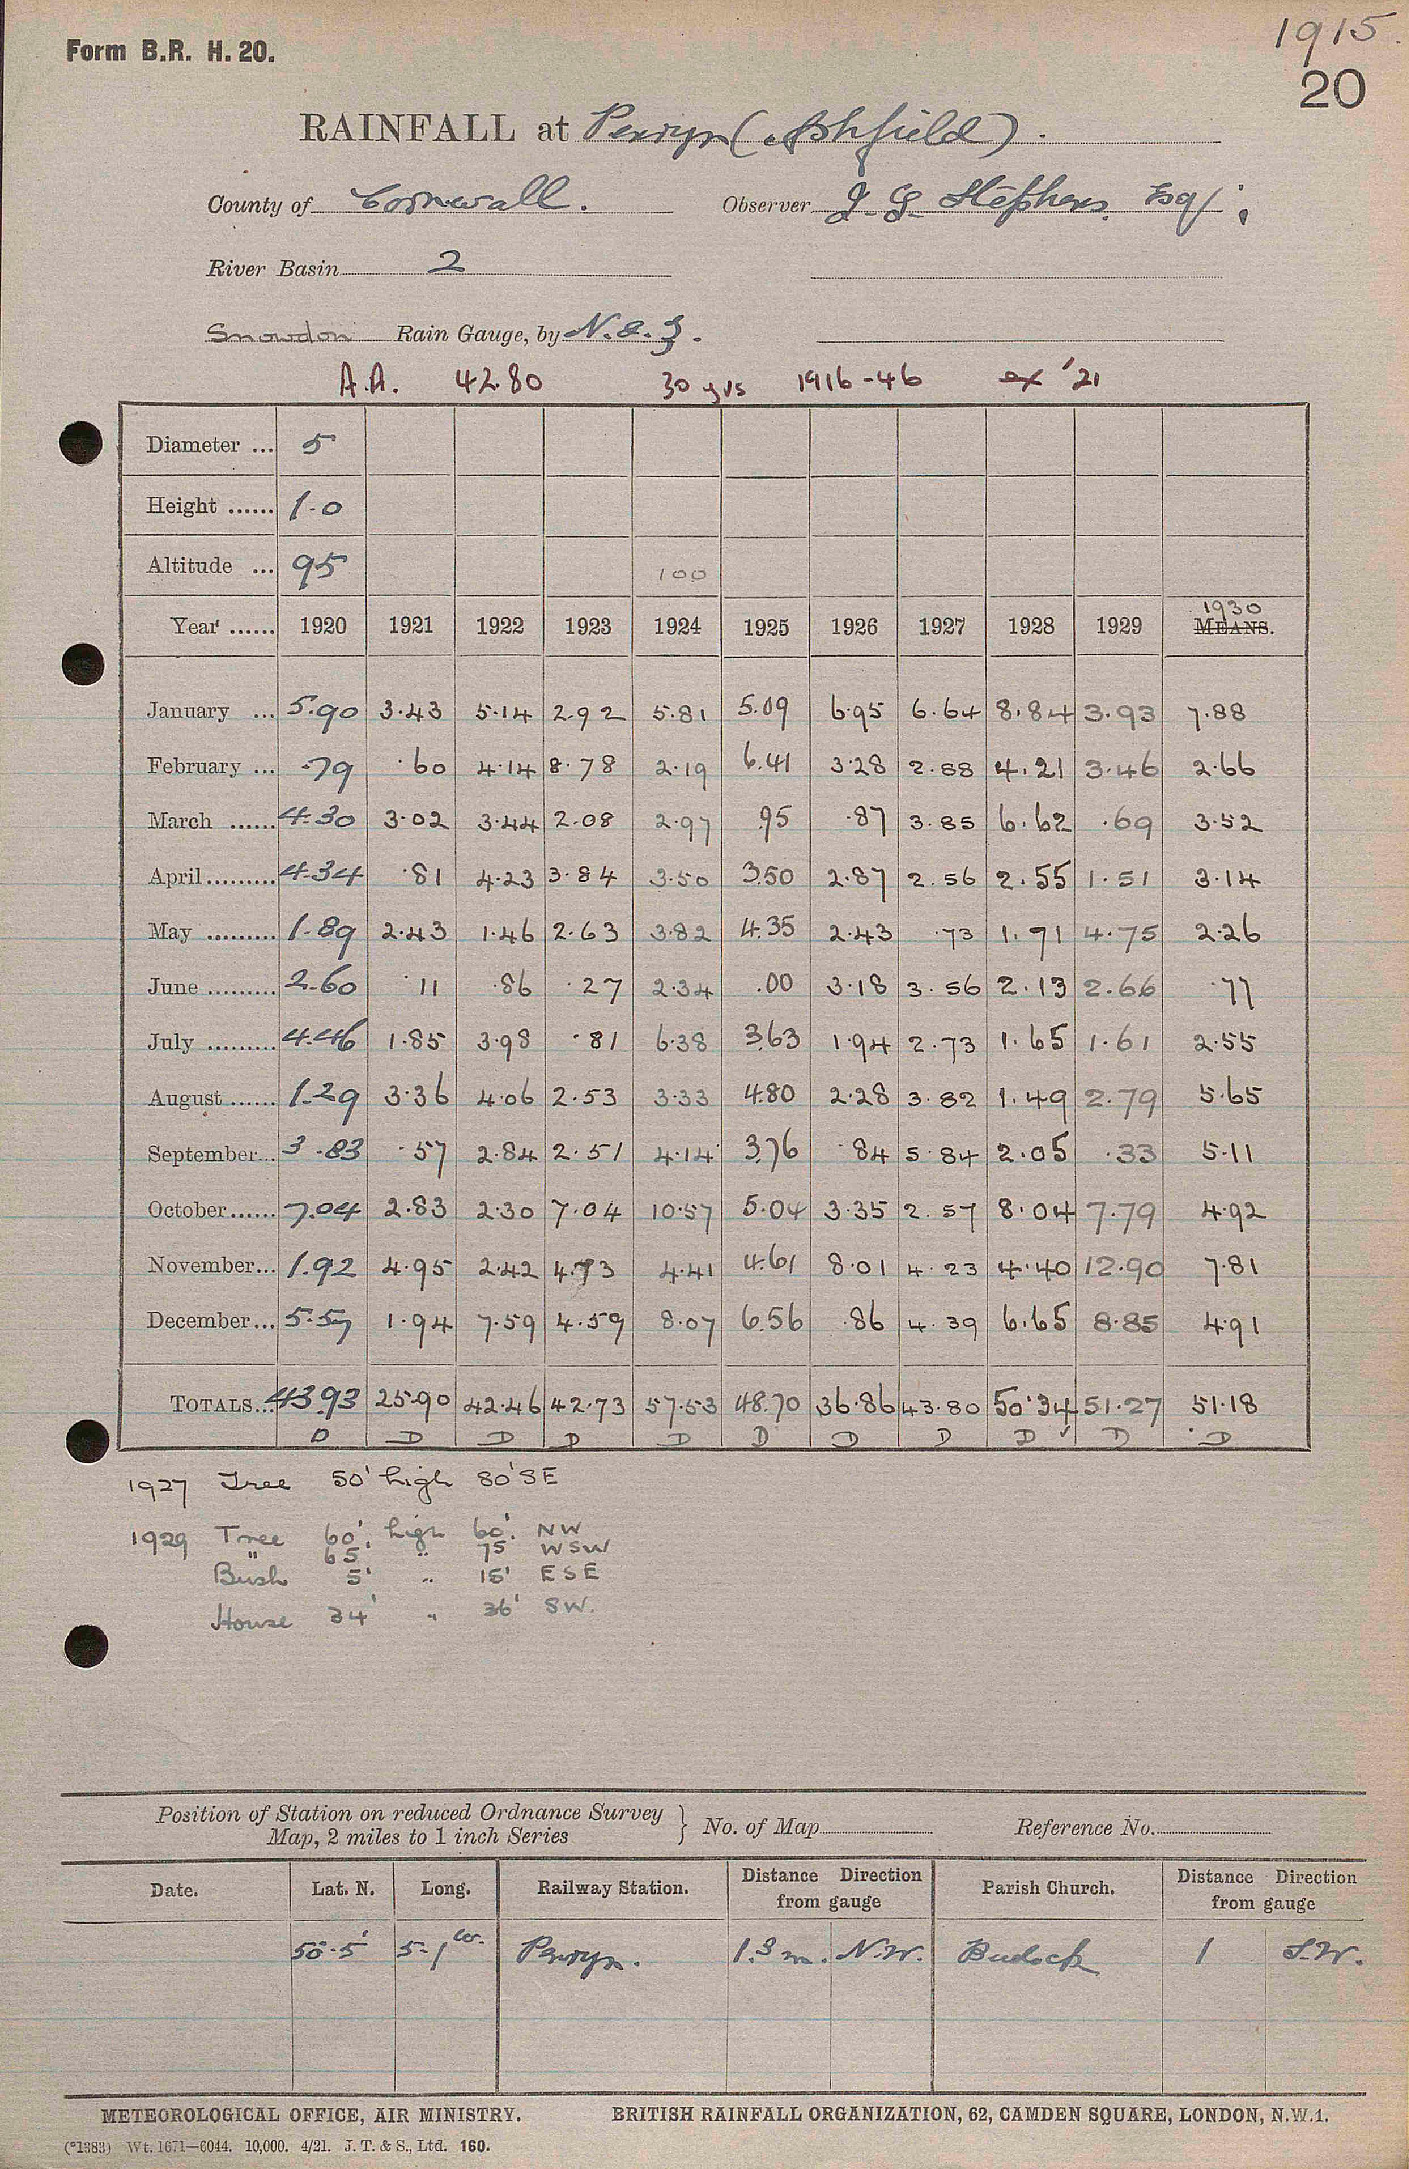 1915.
Form B.R. H. 20.
20
RAINFALL at Penryn (Ashfield).
County of Cornwall. Observer J. G. Stephens. Esq/;
River Basin 2
Snowdon Rain Gauge, by N. & Z.
A.A. 42.80 30 yrs 1916-46 ex '21
Diameter ... 5
Height ...... 1-0
Altitude ... 95 100
1930
Year ...... 1920 1921 1922 1923 1924 1925 1926 1927 1928 1929 MEANS.
January ... 5.90 3.43 5.14 2.92 5.81 5.09 6.95 6.64 8.84 3.93 7.88
February ... .79 .60 4.14 8.78 2.19 6.41 3.28 2.88 4.21 3.46 2.66
March ...... 4.30 3.02 3.44 2.08 2.97 .95 .87 3.85 6.62 .69 3.52
April ......... 4.34 .81 4.23 3.84 3.50 3.50 2.87 2.56 2.55 1.51 3.14
May ......... 1.89 2.43 1.46 2.63 3.82 4.35 2.43 .73 1.71 4.75 2.26
June ......... 2.60 .11 .86 .27 2.34 .00 3.18 3.56 2.13 2.66 .77
July ......... 4.46 1.85 3.98 .81 6.38 3.63 1.94 2.73 1.65 1.61 2.55
August ...... 1.29 3.36 4.06 2.53 3.33 4.80 2.28 3.82 1.49 2.79 5.65
September ... 3.83 .57 2.84 2.51 4.14 3.76 .84 5.84 2.05 .33 5.11
October ...... 7.04 2.83 2.30 7.04 10.57 5.04 3.35 2.57 8.04 7.79 4.92
November ... 1.92 4.95 2.42 4.73 4.41 4.61 8.01 4.23 4.40 12.90 7.81
December ... 5.57 1.94 7.59 4.59 8.07 6.56 .86 4.39 6.65 8.85 4.91
TOTALS ... 43.93 25.90 42.46 42.73 57.53 48.70 36.86 43.80 50.34 51.27 51.18
D D D D D D D D D ✓ D D
1927 Tree 50' high 80' SE
1929 Tree 60' high 60' NW
" 65' " 75 WSW
Bush 5' " 15' ESE
House 34' " 36' SW.
Position of Station on reduced Ordnance Survey
Map, 2 miles to 1 inch Series } No. of Map Reference No.
Date. Lat. N. Long. Railway Station. Distance Direction from gauge Parish Church. Distance Direction from gauge
50°.5' 5-1 W. Penryn. 1.3 m. N.W. Budock 1 S.W.
METEOROLOGICAL OFFICE, AIR MINISTRY. BRITISH RAINFALL ORGANIZATION, 62, CAMDEN SQUARE, LONDON, N.W.1.
(*1383) Wt. 1671—6044. 10,000. 4/21. J. T. & S., Ltd. 160.